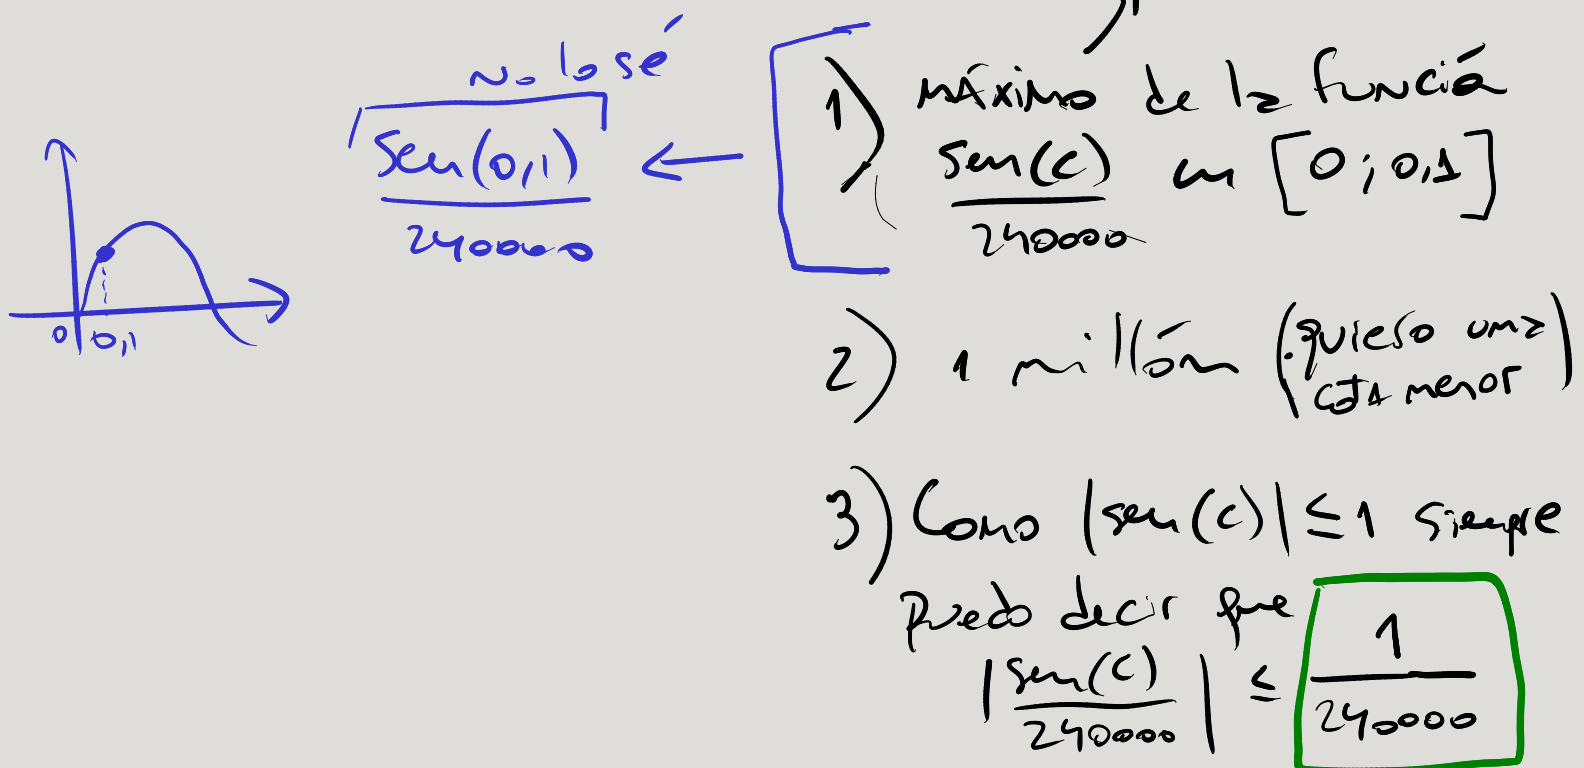 No lo sé
sen(0,1)
240000
0 0,1
1) MÁXIMO de la función
sen(c) en [0; 0,1]
240000
2) 1 millón (quiero una
cota menor)
3) Como |sen(c)| ≤ 1 siempre
puedo decir que
|sen(c)/240000| ≤ 1/240000